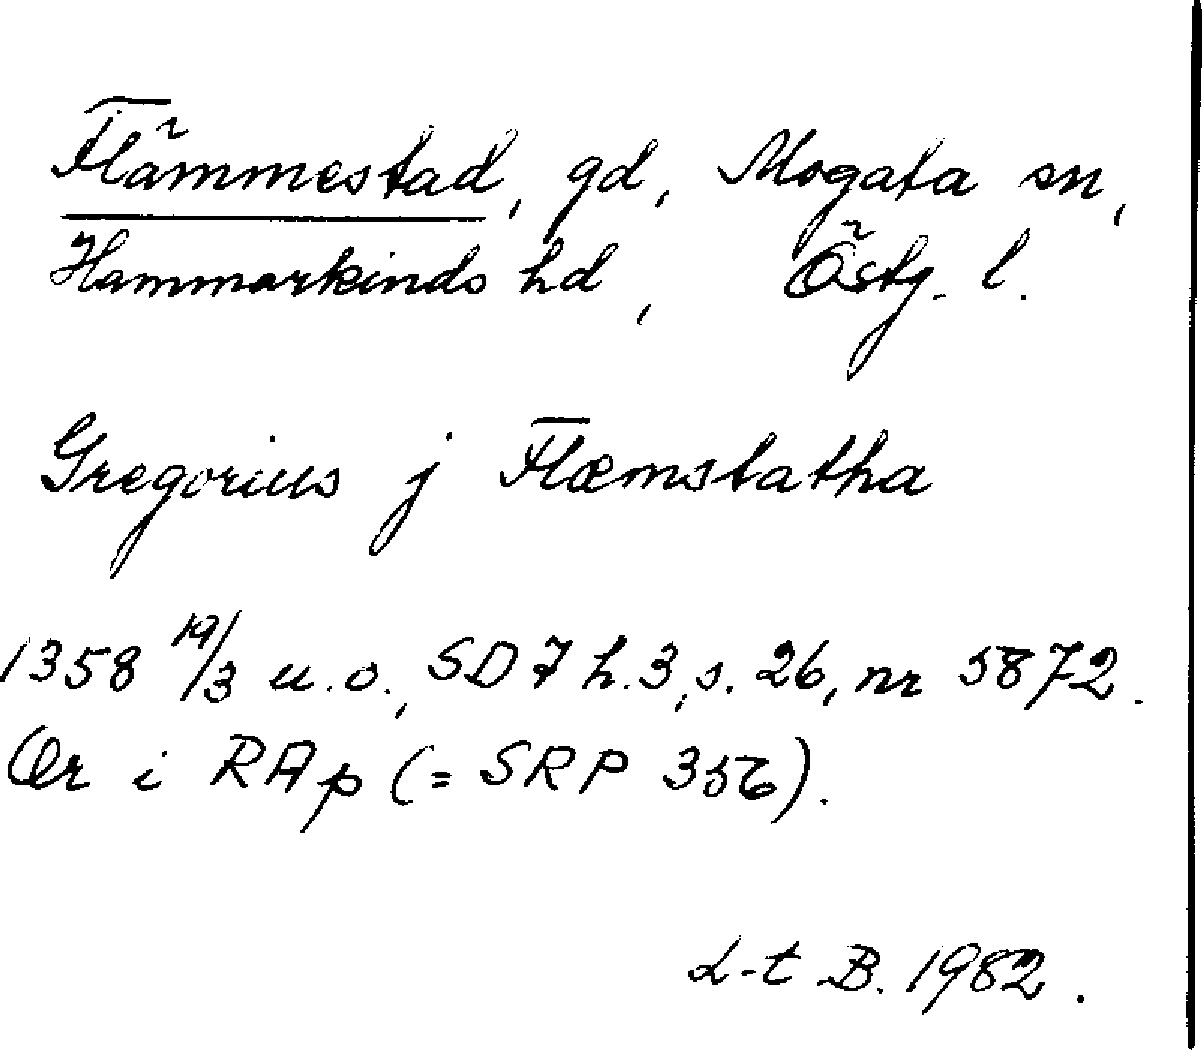 Flämmestad, gd, Mogata sn,
Hammarkinds hd, Östg. l.
Gregorius j Flæmstatha
1358 19/3 u.o., SD 7 h. 3, s. 26, nr 5872.
Or i RAp (= SRP 356).
L-t B. 1982.